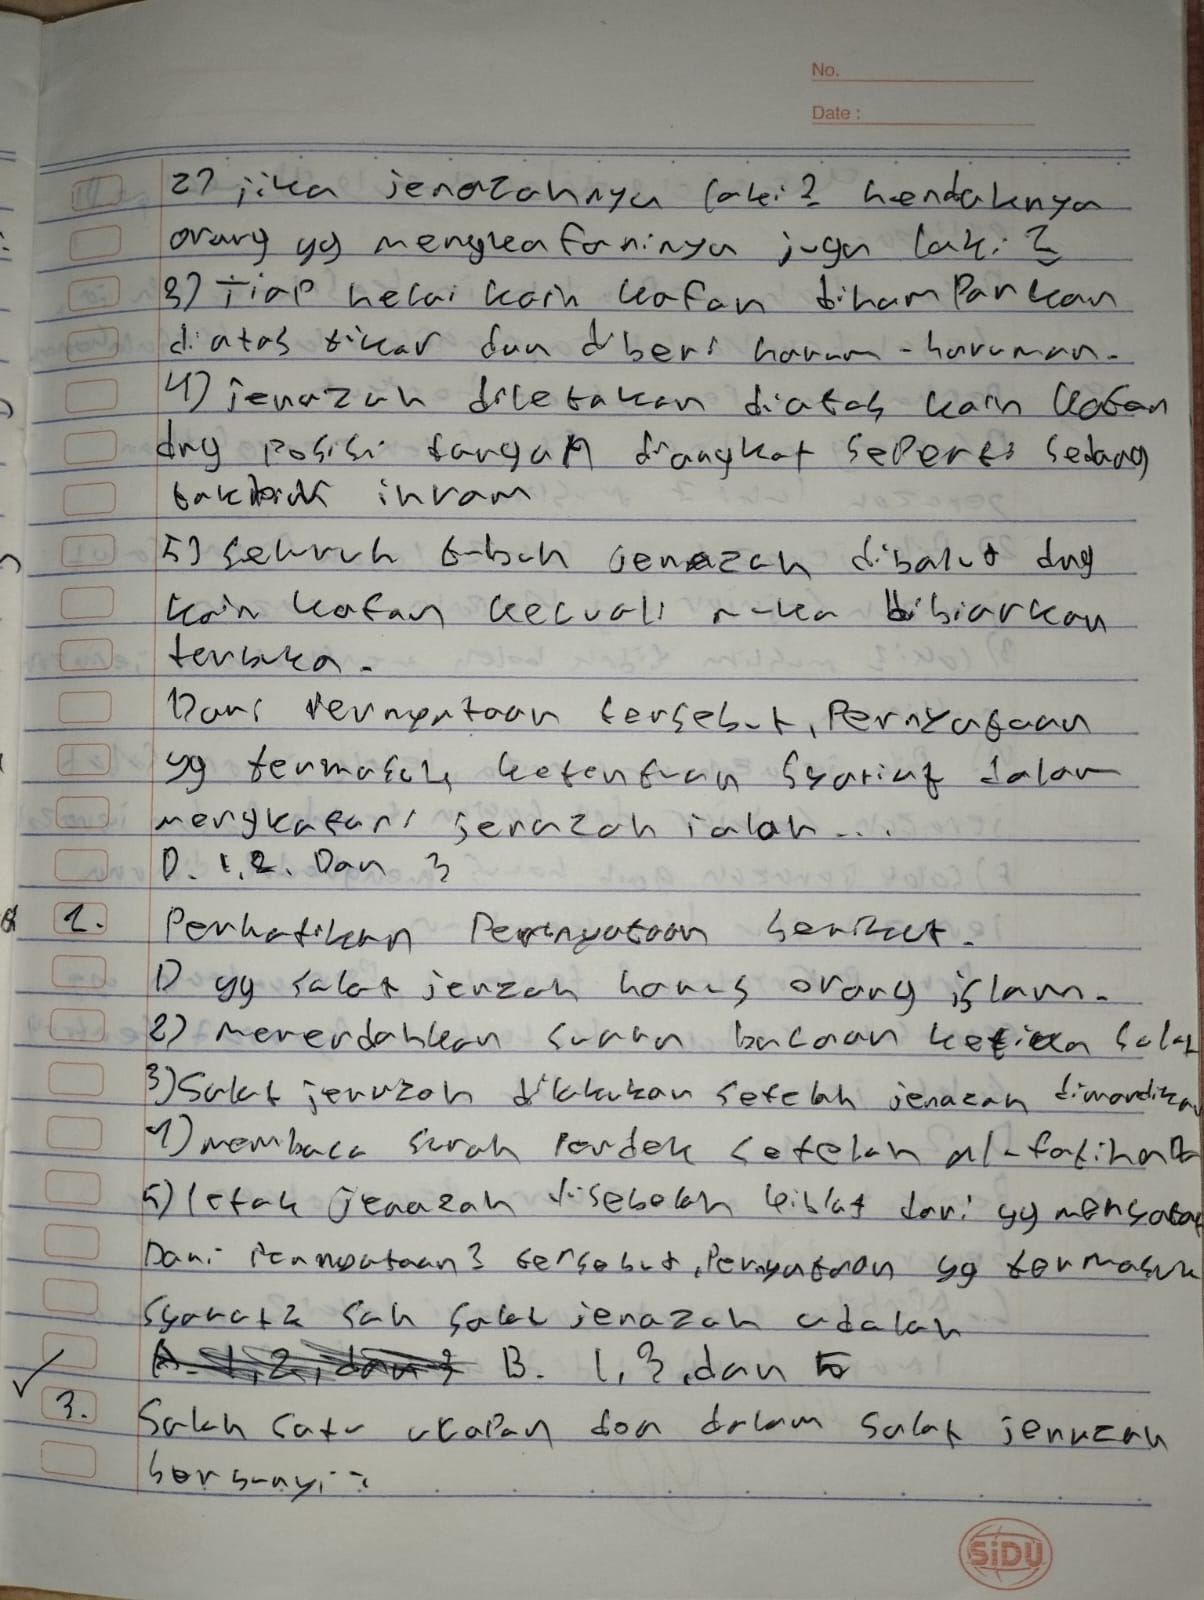 No.
Date :
2) jika jenazahnya laki2 hendaknya
orang yg mengkafaninya juga laki2
3) Tiap helai kain kafan dihamparkan
diatas tikar dan diberi harum-haruman.
4) jenazah diletakan diatas kain kafan
dng posisi tangan diangkat seperti sedang
ihram
5) seluruh tubuh jenazah dibalut dng
kain kafan kecuali muka dibiarkan
terbuka.
Dari Pernyataan tersebut, Pernyataan
yg termasuk ketentuan syariat dalam
mengkafani jenazah ialah...
D. 1,2. Dan 3
1. Perhatikan Pernyataan berikut.
1) yg salat jenzah harus orang islam.
2) merendahkan suara bacaan ketika salat
3) Salat jenazah dilakukan setelah jenazah dimandikan
4) membaca surah Pendek setelah al-fatihah
5) letak jenazah disebelah kiblat dari yg mensalat
Dari Pernyataan2 tersebut, Pernyataan yg termasuk
syarat2 sah salat jenazah adalah
A. 1, 2, dan 3 B. 1, 3, dan 5
3. Salah satu ucapan doa dalam salat jenazah
berbunyi :
SiDU